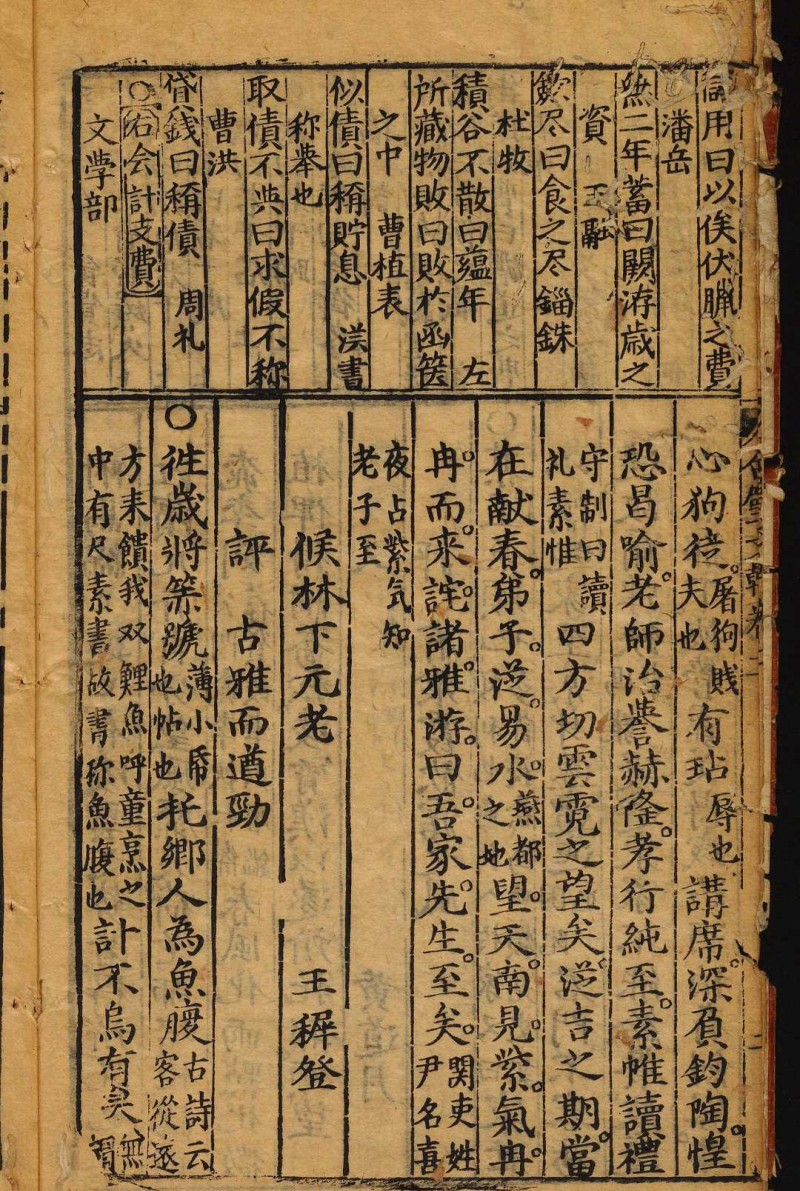 用曰以俟伏臘之費
潘岳
無二年蓄曰闕洊歲之
資　王融
歛尽曰食之尽錙銖
杜牧
積谷不散曰蘊年　左
所藏物敗曰敗於函篋
之中　曹植表
似債曰稱貯息　漢書
称举也
取債不與曰求假不称
曹洪
貸錢曰稱債　周礼
○右会計支費
文學部
心狗徒。屠狗賤夫也有玷辱也講席。深負鈞陶。惶
恐曷喻。老師治譽赫隆。孝行純至。素帷讀禮
守制曰讀礼素惟四方切雲霓之望矣。逆吉之期。當
在献春。弟子。逆。易水。燕都之地望。天。南。見。紫。氣。冉
冉。而。来。詫。諸。雅。游。曰。吾。家。先。生。至。矣。関吏姓尹名喜
夜占紫気知老子至
候林下元老　王穉登
評　古雅而遒勁
○徃歲將荼號薄小帋也帖也托鄉人為魚腹古詩云客從遠
方来饋我双鯉魚呼童烹之中有尺素書故書称魚腹也計不烏有矣無謂